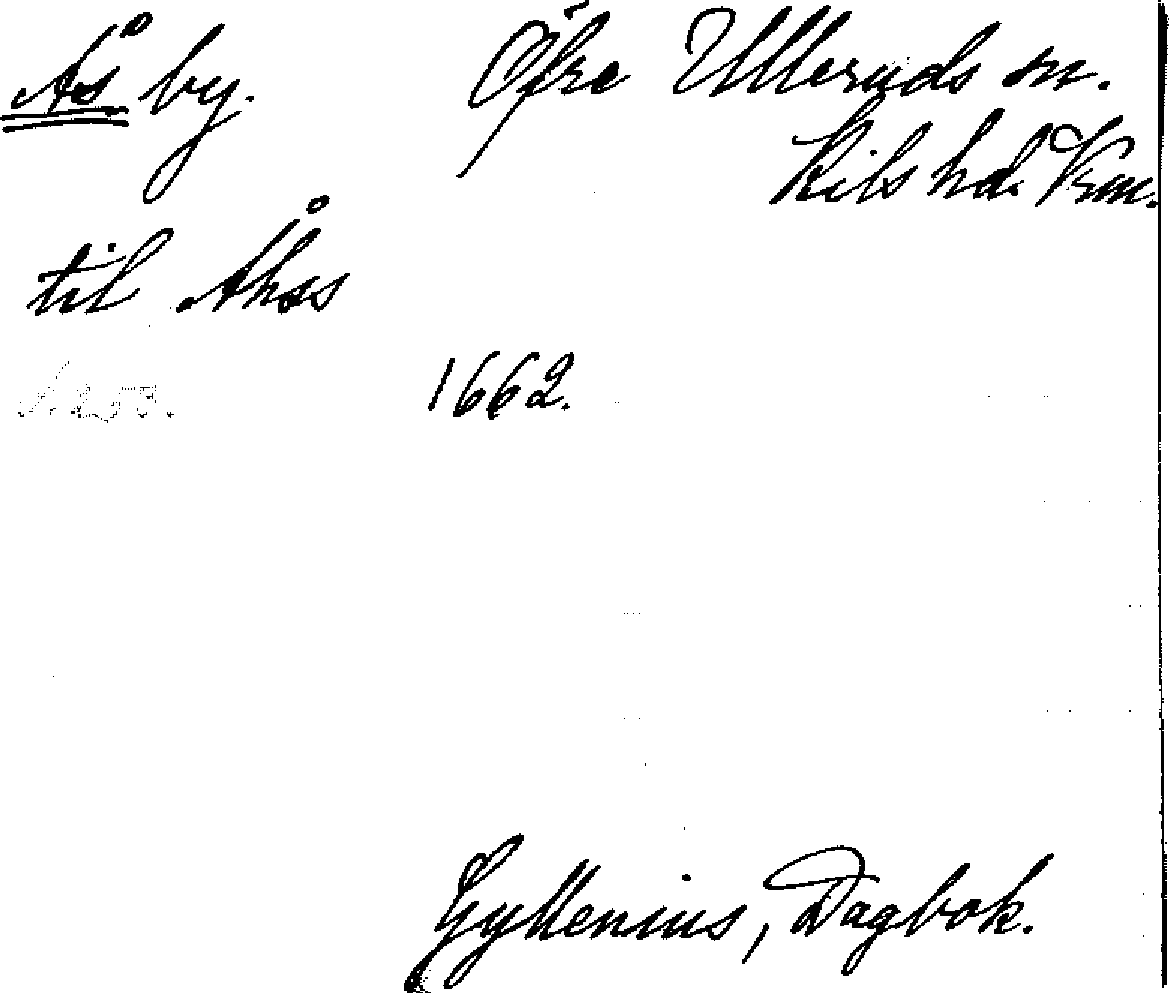 Ås by. Öfre Ulleruds sn.
Kils hd. Vrm.
til Åhss
1662.
Gyllenius, Dagbok.